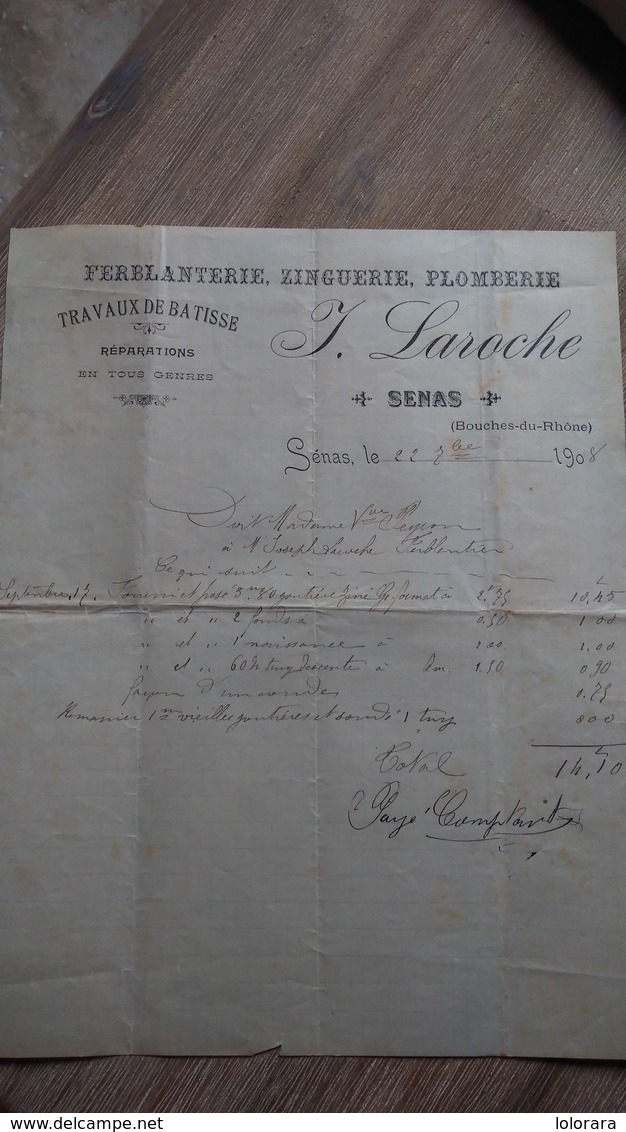 FERBLANTERIE, ZINGUERIE, PLOMBERIE
TRAVAUX DE BATISSE
RÉPARATIONS
EN TOUS GENRES
J. Laroche
SENAS
(Bouches-du-Rhône)
Sénas, le 22 7bre 1908
Doit Madame Vve Peyron
à Mr Joseph Laroche Ferblantier
Ce qui suit
Septembre 17. Fourni et posé 3m80 gouttière zinc Gr format à 2,75 10,45
" et " 2 fonds à 0,50 1 00
" et " 1 naissance à 1 00 1,00
" et " 60 % tuy descente à le m. 1,50 0,90
façon d'un coude 0,75
Remanier 1m vieilles gouttières et soudé 1 tuy 000
Total 14,10
Payé Comptant
delcampe.net
lolorara